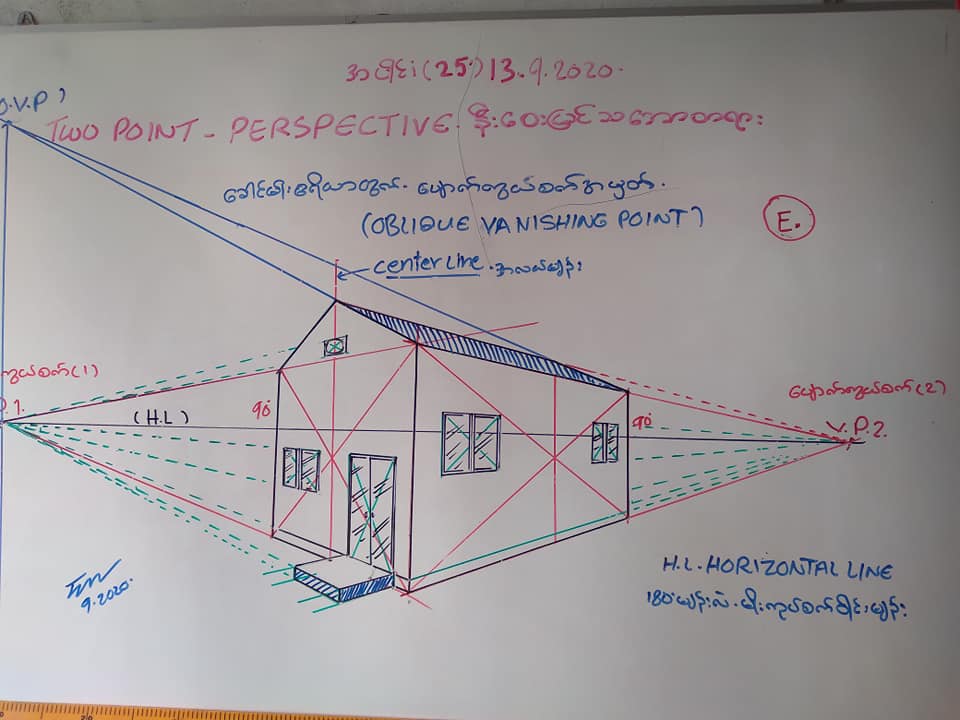 အပိုင်း(25) 13.9.2020.
O.V.P)
TWO POINT - PERSPECTIVE. နီးဝေးမြင်သဘောတရား
ခေါင်မိုးဧရိယာတွက်. ပျောက်ကွယ်စက်အမှတ်.
(OBLIQUE VANISHING POINT)
E.
center line. အလယ်မျဉ်း
ကွယ်စက်(1)
P.1.
(H.L)
90°
90°
ပျောက်ကွယ်စက်(2)
V.P.2.
H.L. HORIZONTAL LINE
9.2020.
180°
20